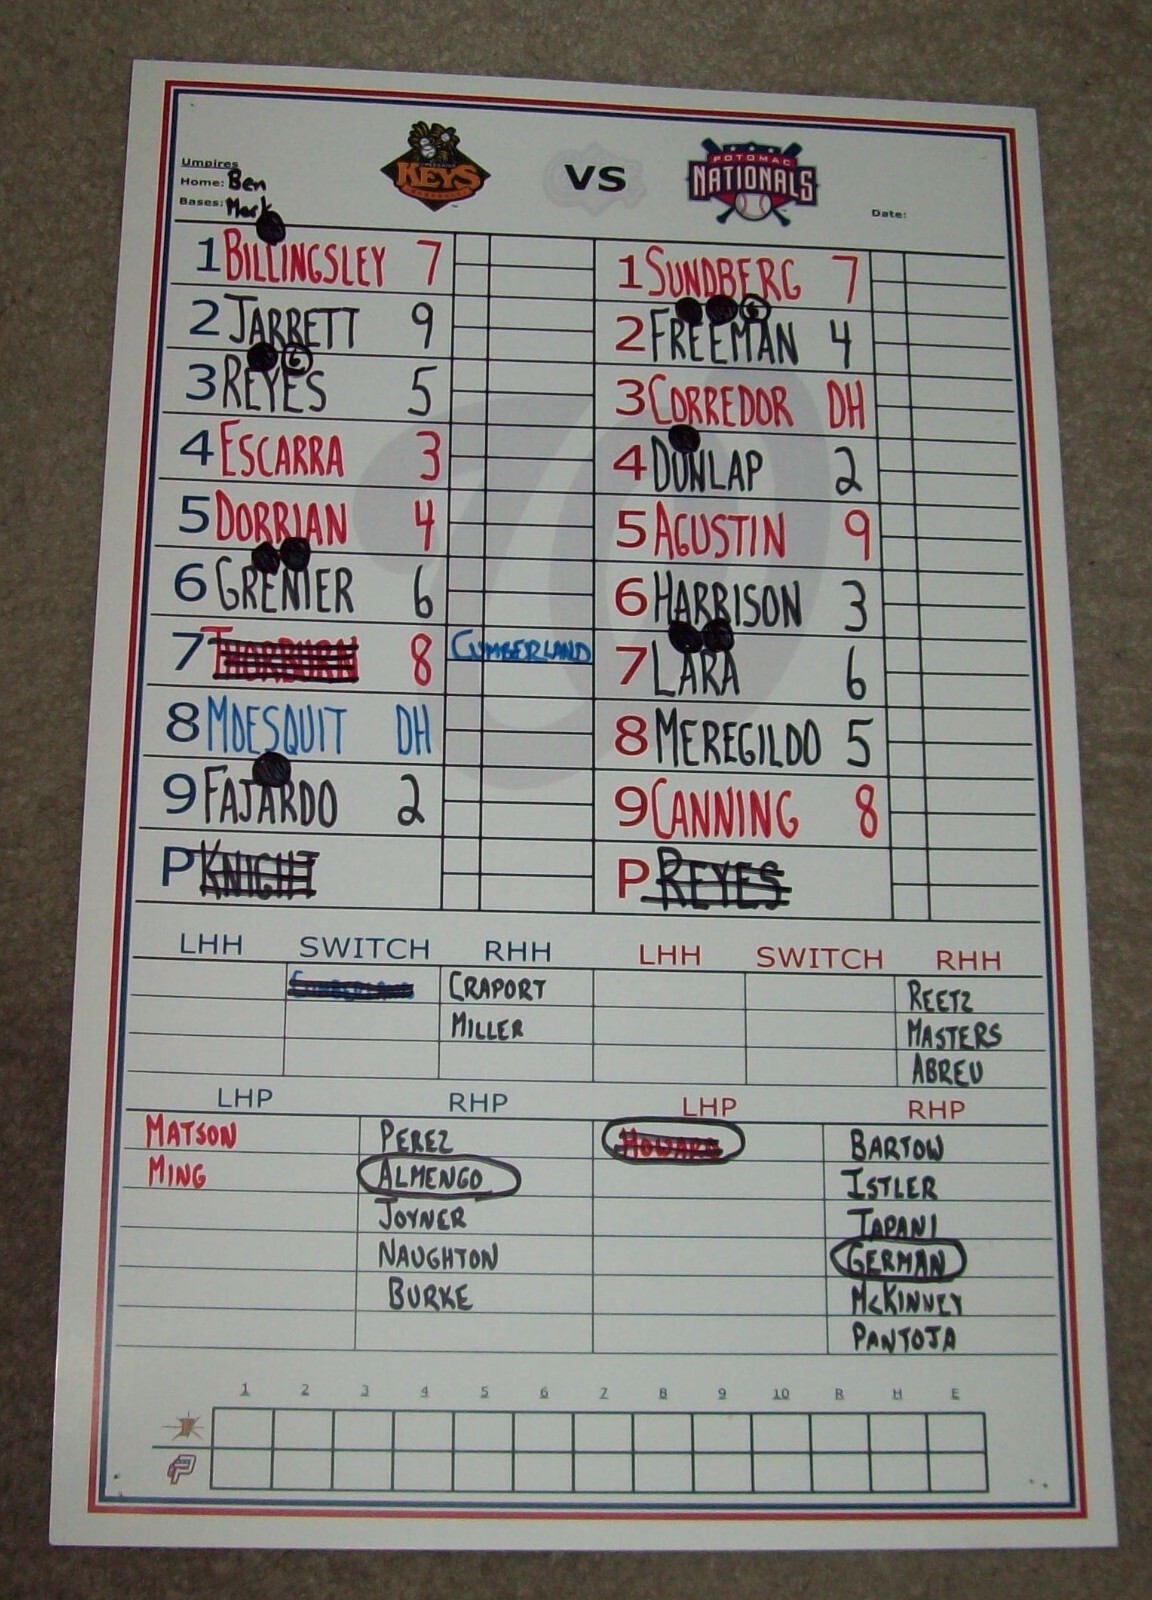 KEYS
VS
POTOMAC
NATIONALS
Umpires
Home: Ben
Bases: Mark
Date:
1 BILLINGSLEY 7
2 JARRETT 9
3 REYES 5
4 ESCARRA 3
5 DORRIAN 4
6 GRENIER 6
7 THORBURN 8 CUMBERLAND
8 MOESQUIT DH
9 FAJARDO 2
P KNIGHT
1 SUNDBERG 7
2 FREEMAN 4
3 CORREDOR DH
4 DUNLAP 2
5 AGUSTIN 9
6 HARRISON 3
7 LARA 6
8 MEREGILDO 5
9 CANNING 8
P REYES
LHH SWITCH RHH
CUMBERLAND CRAPORT
MILLER
LHH SWITCH RHH
REETZ
MASTERS
ABREU
LHP RHP
MATSON PEREZ
MING ALMENGO
JOYNER
NAUGHTON
BURKE
LHP RHP
HOWARD BARTOW
ISTLER
TAPANI
GERMAN
MCKINNEY
PANTOJA
1 2 3 4 5 6 7 8 9 10 R H E
P